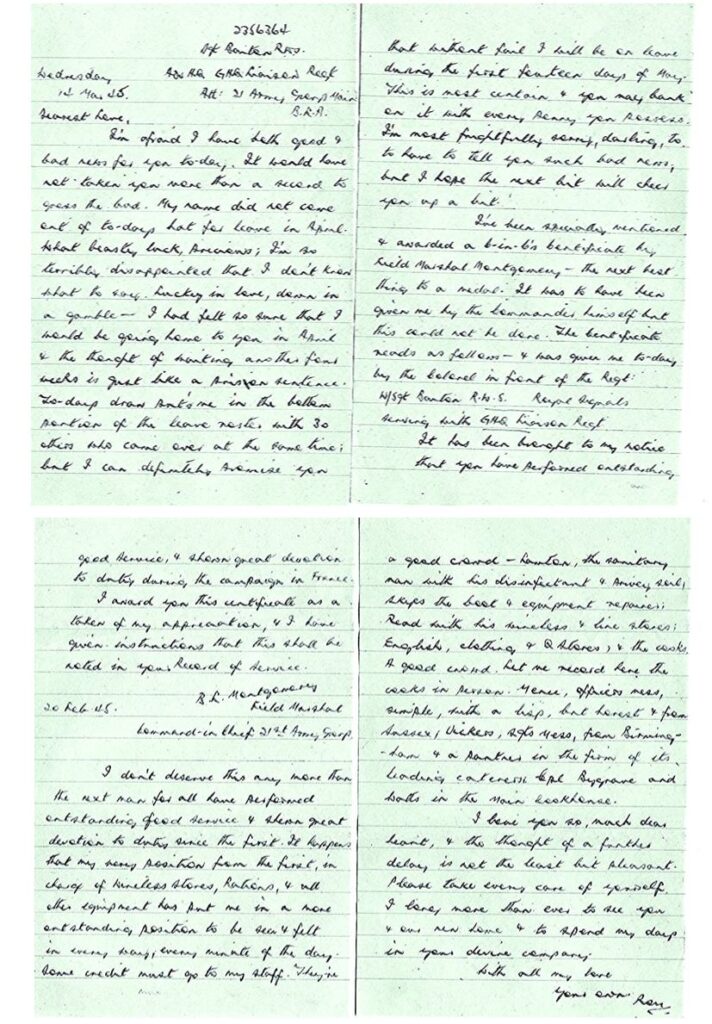 2356364
Sgt Banton R.W.S.
Wednesday Adv HQ GHQ Liaison Regt
14 Mar 45. Att: 21 Army Group Main
B.L.A.
Dearest Love,
I'm afraid I have both good &
bad news for you to-day. It would have
not taken you more than a second to
guess the bad. My name did not come
out of to-days hat for leave in April.
What beastly luck, precious; I'm so
terribly disappointed that I don't know
what to say. Lucky in love, down in
a gamble — I had felt so sure that I
would be going home to you in April
& the thought of wanting another four
weeks is just like a prison sentence.
To-days draw puts me in the bottom
portion of the leave roster with 30
others who came over at the same time;
but I can definitely promise you
that without fail I will be on leave
during the first fourteen days of May.
This is most certain & you may bank
on it with every penny you possess.
I'm most frightfully sorry, darling, to
to have to tell you such bad news,
but I hope the next bit will cheer
you up a bit.
I've been specially mentioned
& awarded a C-in-C's Certificate by
Field Marshal Montgomery — the next best
thing to a medal. It was to have been
given me by the Commander himself but
this could not be done. The Certificate
reads as follows — & was given me to-day
by the Colonel in front of the Regt:
W/Sgt Banton R.W.S. Royal Signals
serving with GHQ Liaison Regt
It has been brought to my notice
that you have performed outstanding
good service, & shown great devotion
to duty during the campaign in France.
I award you this certificate as a
token of my appreciation, & I have
given instructions that this shall be
noted in your Record of Service.
B.L. Montgomery
20 Feb. 45. Field Marshal
Command-in Chief 21st Army Group
I don't deserve this any more than
the next man for all have performed
outstanding good service & shown great
devotion to duty since the first. It happens
that my very position from the first, in
charge of Wireless Stores, Rations, & all
other equipment has put me in a more
outstanding position to be seen & felt
in every way, every minute of the day.
Some credit must go to my staff. They're
a good crowd — the sanitary
man with his disinfectant & privey soil;
the boot & equipment repairer;
Read with his wireless & line stores;
English, clothing & Q Stores; & the cooks.
A good crowd. Let me record here the
cooks in person. officers mess,
simple, with a lisp, but honest & from
Sussex; Vickers, Sgts Mess, from Birming-
ham & a partner in the firm of its
leading caterers; Cpl Bysgrave and
Watts in the main cookhouse.
I love you so, much dear
heart, & the thought of a further
delay is not the least bit pleasant.
Please take every care of yourself.
I long more than ever to see you
& our new home & to spend my days
in your devine company.
With all my love
Your own Ron